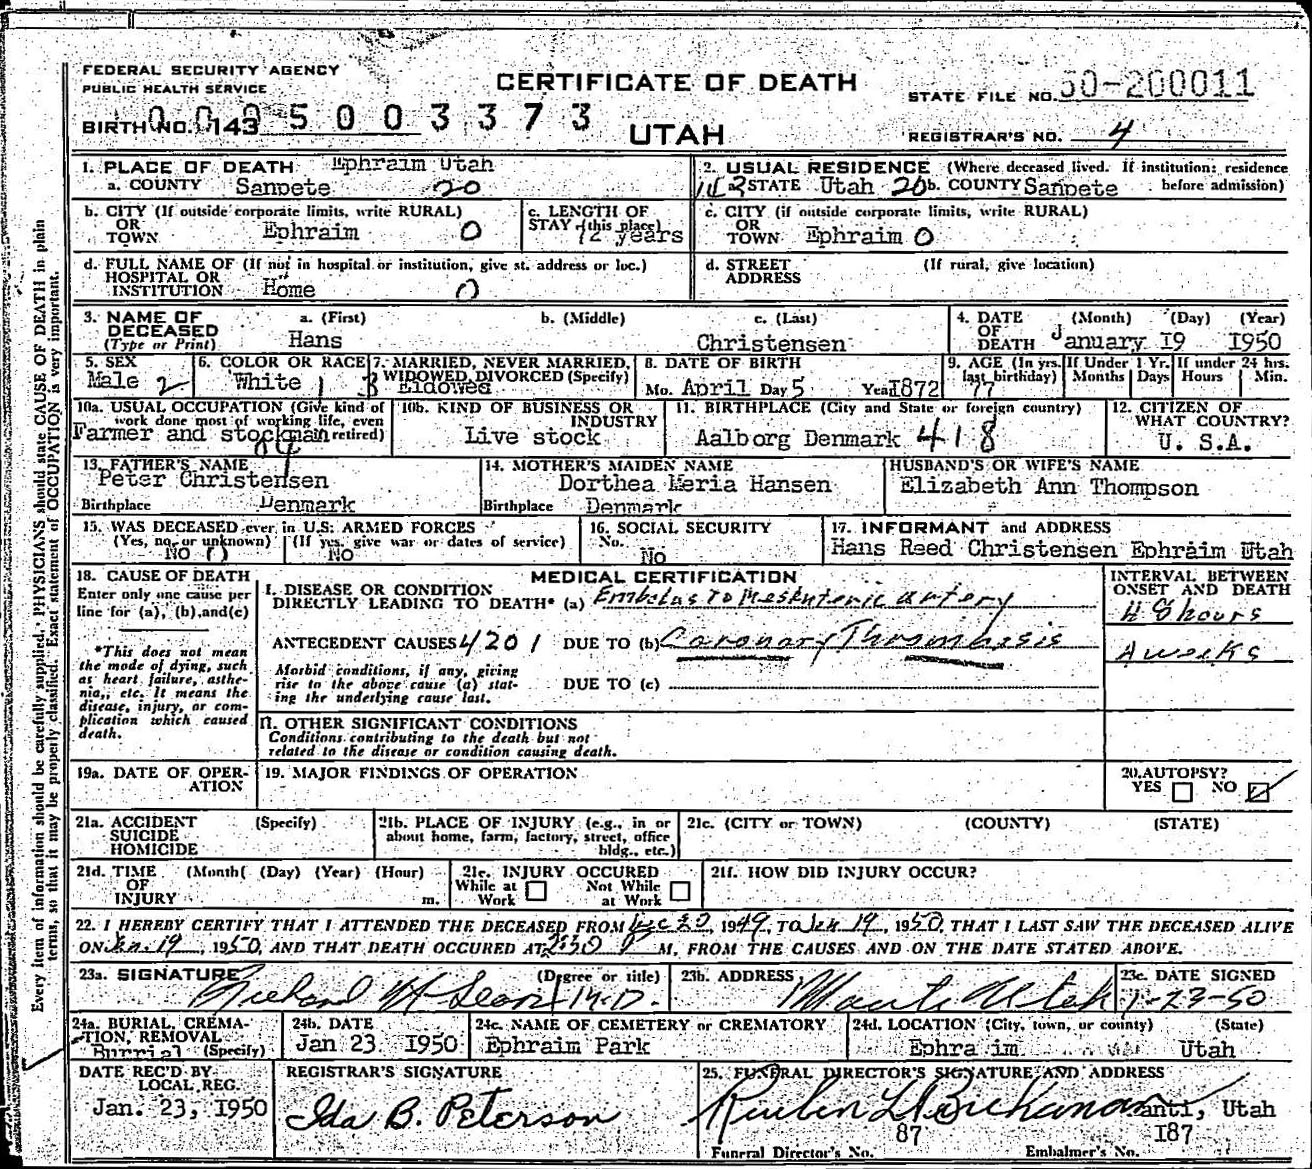 FEDERAL SECURITY AGENCY
PUBLIC HEALTH SERVICE
CERTIFICATE OF DEATH
STATE FILE NO. 50-200011
BIRTH NO. 143 0095003373
UTAH
REGISTRAR'S NO. 4
1. PLACE OF DEATH Ephraim Utah
a. COUNTY Sanpete 20
2. USUAL RESIDENCE (Where deceased lived. If institution: residence before admission)
a. STATE Utah 20 b. COUNTY Sanpete
b. CITY (If outside corporate limits, write RURAL)
OR
TOWN Ephraim 0
c. LENGTH OF
STAY (this place)
72 years
c. CITY (if outside corporate limits, write RURAL)
OR
TOWN Ephraim 0
d. FULL NAME OF (If not in hospital or institution, give st. address or loc.)
HOSPITAL OR
INSTITUTION Home 0
d. STREET
ADDRESS
(If rural, give location)
3. NAME OF
DECEASED
(Type or Print)
a. (First)
Hans
b. (Middle)
c. (Last)
Christensen
4. DATE
OF
DEATH
(Month) (Day) (Year)
January I9 I950
5. SEX
Male 2
6. COLOR OR RACE
White 1
7. MARRIED, NEVER MARRIED,
WIDOWED, DIVORCED (Specify)
3
8. DATE OF BIRTH
Mo. April Day 5 Year I872
9. AGE (In yrs.
last birthday)
77
If Under 1 Yr.
Months Days
If under 24 hrs.
Hours Min.
10a. USUAL OCCUPATION (Give kind of
work done most of working life, even
retired)
Farmer and stockman
10b. KIND OF BUSINESS OR
INDUSTRY
Live stock
11. BIRTHPLACE (City and State or foreign country)
Aalborg Denmark 418
12. CITIZEN OF
WHAT COUNTRY?
U. S.A.
13. FATHER'S NAME
Peter Christensen
Birthplace Denmark
14. MOTHER'S MAIDEN NAME
Dorthea Meria Hansen
Birthplace Denmark
HUSBAND'S OR WIFE'S NAME
Elizabeth Ann Thompson
15. WAS DECEASED ever in U.S. ARMED FORCES
(Yes, no, or unknown) (If yes, give war or dates of service)
NO No
16. SOCIAL SECURITY
No.
No
17. INFORMANT and ADDRESS
Hans Reed Christensen Ephraim Utah
18. CAUSE OF DEATH
Enter only one cause per
line for (a), (b), and (c)
*This does not mean
the mode of dying, such
as heart failure, asthe-
nia,, etc. It means the
disease, injury, or com-
plication which caused
death.
MEDICAL CERTIFICATION
I. DISEASE OR CONDITION
DIRECTLY LEADING TO DEATH* (a) Embolus to Mesenteric artery
ANTECEDENT CAUSES 4201 DUE TO (b) Coronary Thrombosis
Morbid conditions, if any, giving
rise to the above cause (a) stat-
ing the underlying cause last.
DUE TO (c)
II. OTHER SIGNIFICANT CONDITIONS
Conditions contributing to the death but not
related to the disease or condition causing death.
INTERVAL BETWEEN
ONSET AND DEATH
48 hours
4 weeks
19a. DATE OF OPER-
ATION
19. MAJOR FINDINGS OF OPERATION
20. AUTOPSY?
YES NO
21a. ACCIDENT
SUICIDE
HOMICIDE
(Specify)
21b. PLACE OF INJURY (e.g., in or
about home, farm, factory, street, office
bldg., etc.)
21c. (CITY or TOWN) (COUNTY) (STATE)
21d. TIME
OF
INJURY
(Month( (Day) (Year) (Hour)
m.
21e. INJURY OCCURED
While at
Work
Not While
at Work
21f. HOW DID INJURY OCCUR?
22. I HEREBY CERTIFY THAT I ATTENDED THE DECEASED FROM Dec 20, 1949, TO Jan 19, 1950, THAT I LAST SAW THE DECEASED ALIVE
ON Jan. 19, 1950, AND THAT DEATH OCCURED AT 2:30 P M, FROM THE CAUSES AND ON THE DATE STATED ABOVE.
23a. SIGNATURE (Degree or title)
Richard M.D.
23b. ADDRESS
Manti Utah
23c. DATE SIGNED
1-23-50
24a. BURIAL, CREMA-
TION, REMOVAL
Burrial (Specify)
24b. DATE
Jan 23 I950
24c. NAME OF CEMETERY or CREMATORY
Ephraim Park
24d. LOCATION (City, town, or county) (State)
Ephraim Utah
DATE REC'D BY
LOCAL REG.
Jan. 23, I950
REGISTRAR'S SIGNATURE
Ida B. Peterson
25. FUNERAL DIRECTOR'S SIGNATURE AND ADDRESS
Buchanan anti, Utah
87 I87
Funeral Director's No. Embalmer's No.
Every item of information should be carefully supplied. PHYSICIANS should state CAUSE OF DEATH in plain
terms, so that it may be properly classified. Exact statement of OCCUPATION is very important.